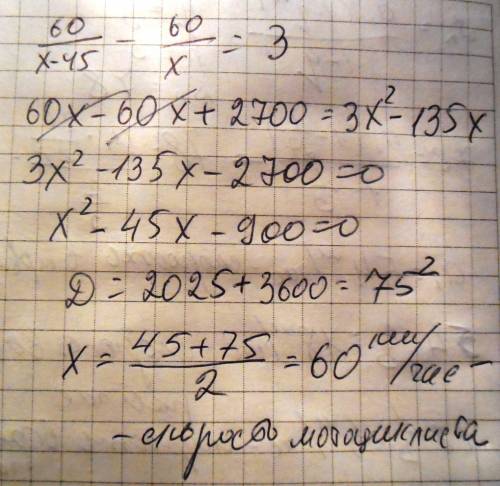 60/(x-45) - 60/x = 3
60x - 60x + 2700 = 3x² - 135x
3x² - 135x - 2700 = 0
x² - 45x - 900 = 0
D = 2025 + 3600 = 75²
x = (45+75)/2 = 60 км/час -
- скорость мотоциклиста